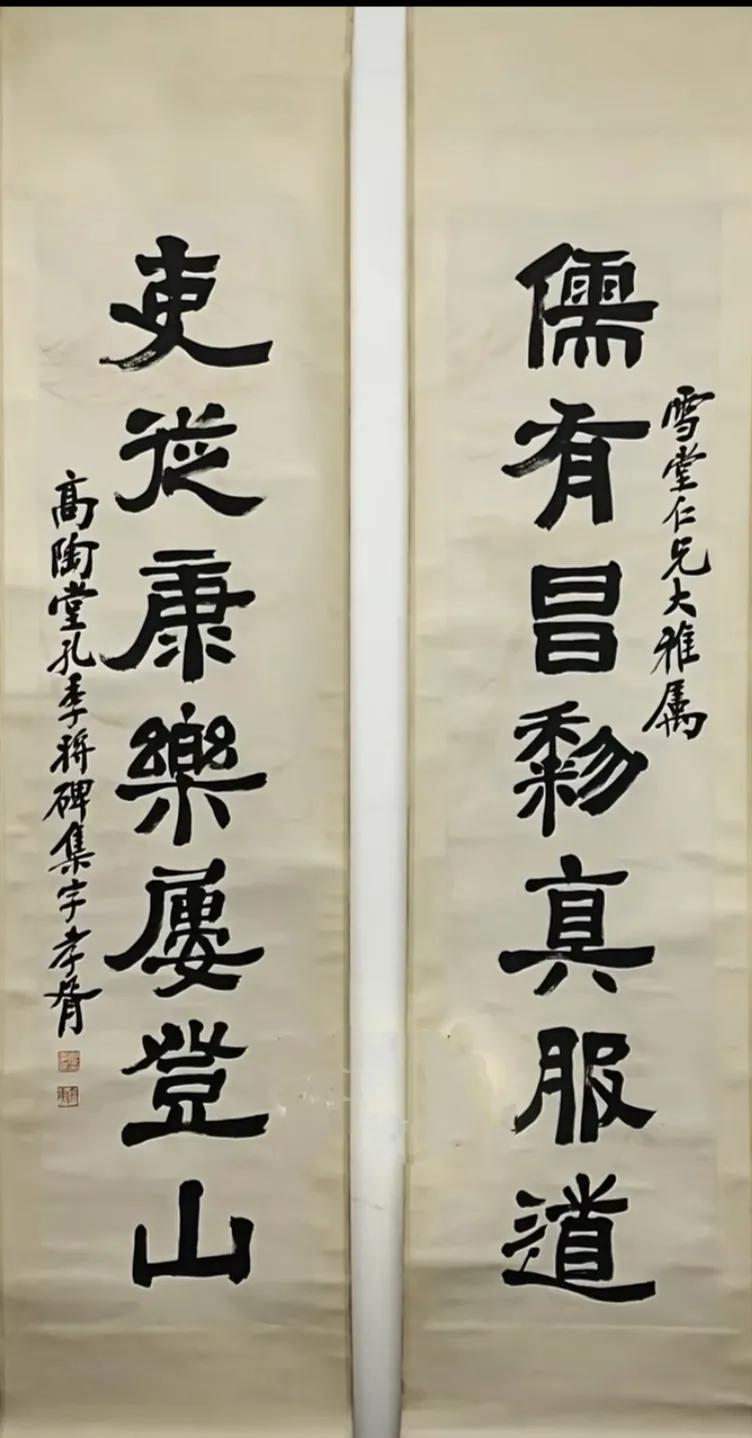 雪堂仁兄大雅属
儒有昌黎真服道
吏從康樂屢登山
高陶堂孔季將碑集字孝胥